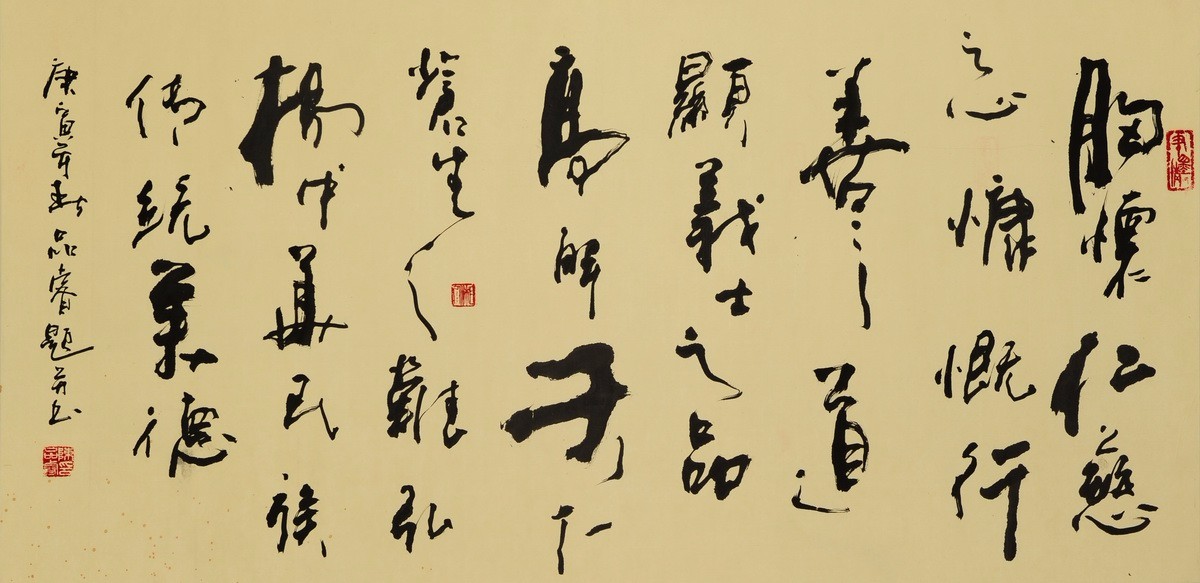 胸懷仁慈
之心慷慨行
善之道
顯義士之品
高解天下
蒼生之難弘
揚中華民族
傳統美德
庚寅年春品睿題并书